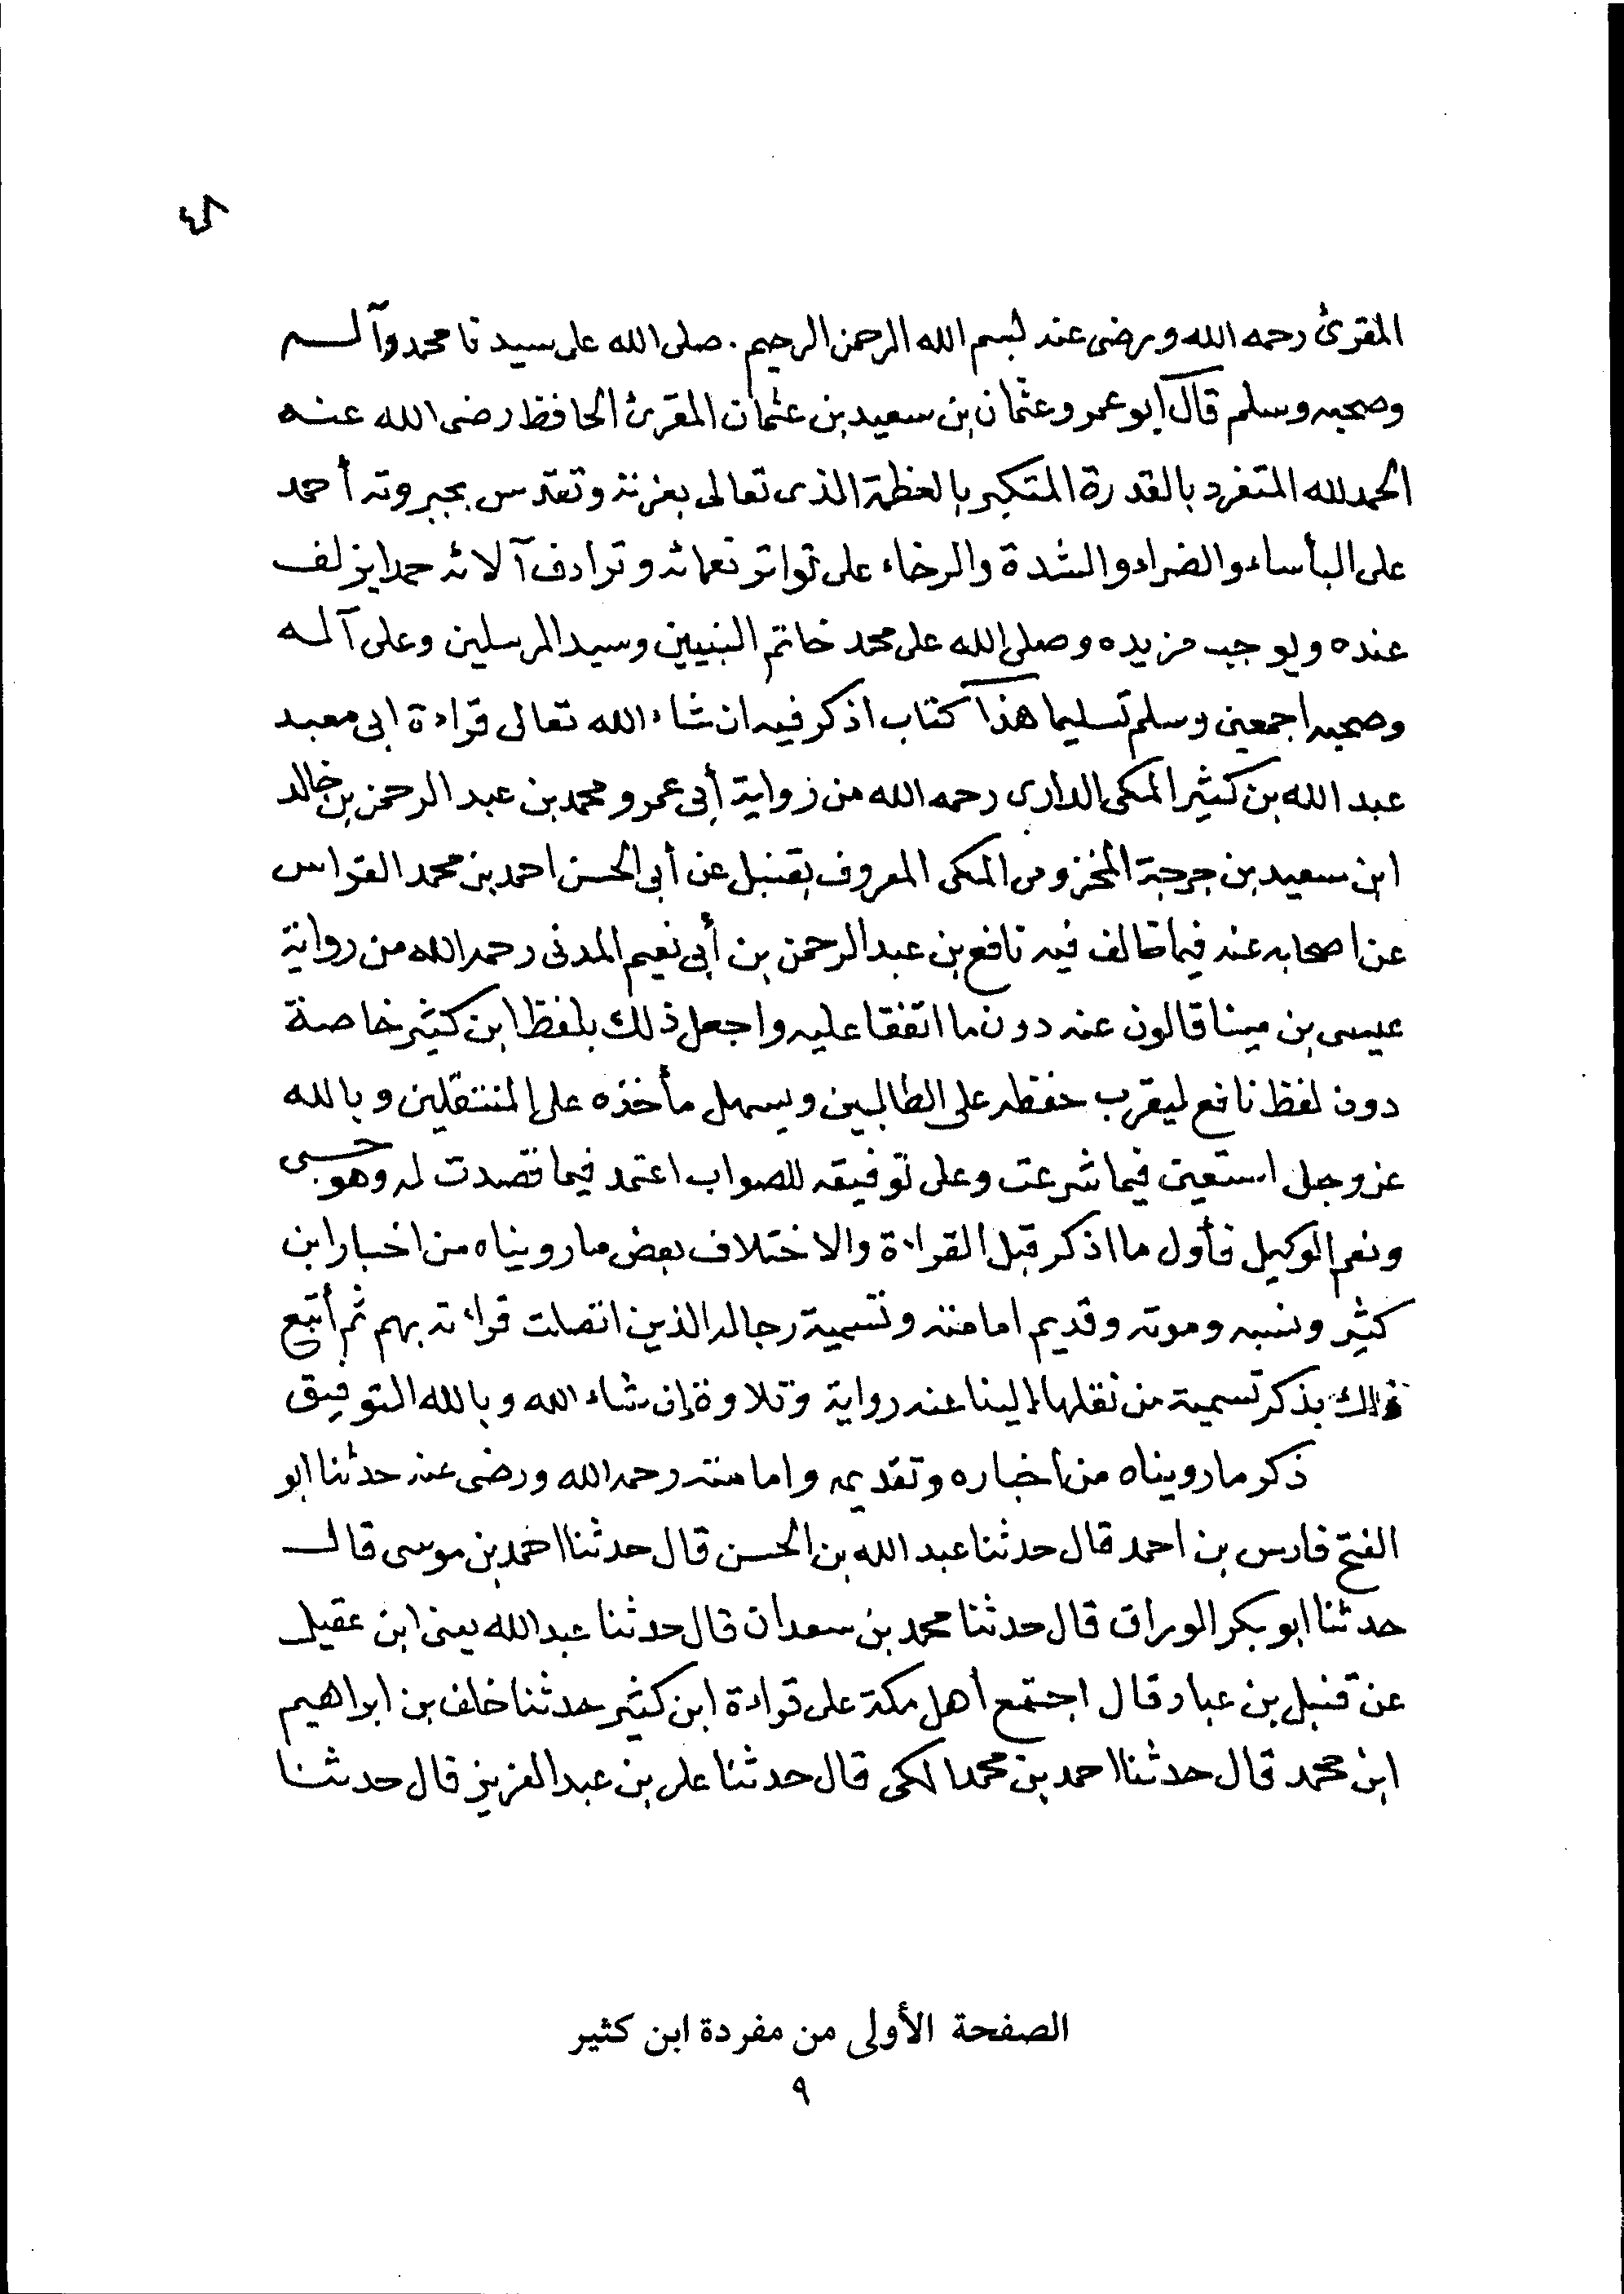 المقرئ رحمه الله ورضى عنه لبسم الله الرحمن الرحيم . صلى الله على سيدنا محمد وآله
وصحبه وسلم قال أبو عمرو عثمان بن سعيد بن عثمان المقرئ الحافظ رضى الله عنه
الحمد لله المتفرد بالقدرة المتكبر بالعظمة الذى تعالى بعزته وتقدس بجبروته أحمد
على البأساء والضراء والشدة والرخاء على تواتر نعمائه وترادف آلائه حمدا يزلف
عنده ويوجب مزيده وصلى الله على محمد خاتم النبيين وسيد المرسلين وعلى آله
وصحبه اجمعين وسلم تسليما هذا كتاب اذكر فيه ان شاء الله تعالى قراءة ابى معبد
عبد الله بن كثير المكى الدارى رحمه الله من رواية أبى عمرو محمد بن عبد الرحمن بن خالد
ابن سعيد بن جرجة المخزومى المكى المعروف بقنبل عن أبى الحسن احمد بن محمد القواس
عن اصحابه عنه فيما خالف فيه نافع بن عبد الرحمن بن أبى نعيم المدنى رحمه الله من رواية
عيسى بن مينا قالون عنه دون ما اتفقا عليه واجعل ذلك بلفظ ابن كثير خاصة
دون لفظ نافع ليقرب حفظه على الطالبين ويسهل مأخذه على المنتقلين وبالله
عز وجل استعين فيما شرعت وعلى توفيقه للصواب اعتمد فيما قصدت له وهو حسبى
ونعم الوكيل فأول ما اذكر قبل القراءة والاختلاف بعض ما رويناه من اخبار ابن
كثير ونسبه وموته وقديم امامته وتسمية رجاله الذين اتصلت قراءته بهم ثم أتبع
ذلك بذكر تسمية من نقلها إلينا عنه رواية وتلاوة إن شاء الله وبالله التوفيق
ذكر ما رويناه من اخباره وتقديمه وامامته رحمه الله ورضى عنه حدثنا ابو
الفتح فارس بن احمد قال حدثنا عبد الله بن الحسن قال حدثنا احمد بن موسى قال
حدثنا ابو بكر الوراق قال حدثنا محمد بن سعدان قال حدثنا عبد الله يعنى ابن عقيل
عن قنبل بن عباد قال اجتمع أهل مكة على قراءة ابن كثير حدثنا خلف بن ابراهيم
ابن محمد قال حدثنا احمد بن محمد المكى قال حدثنا على بن عبد العزيز قال حدثنا
الصفحة الأولى من مفردة ابن كثير
٩